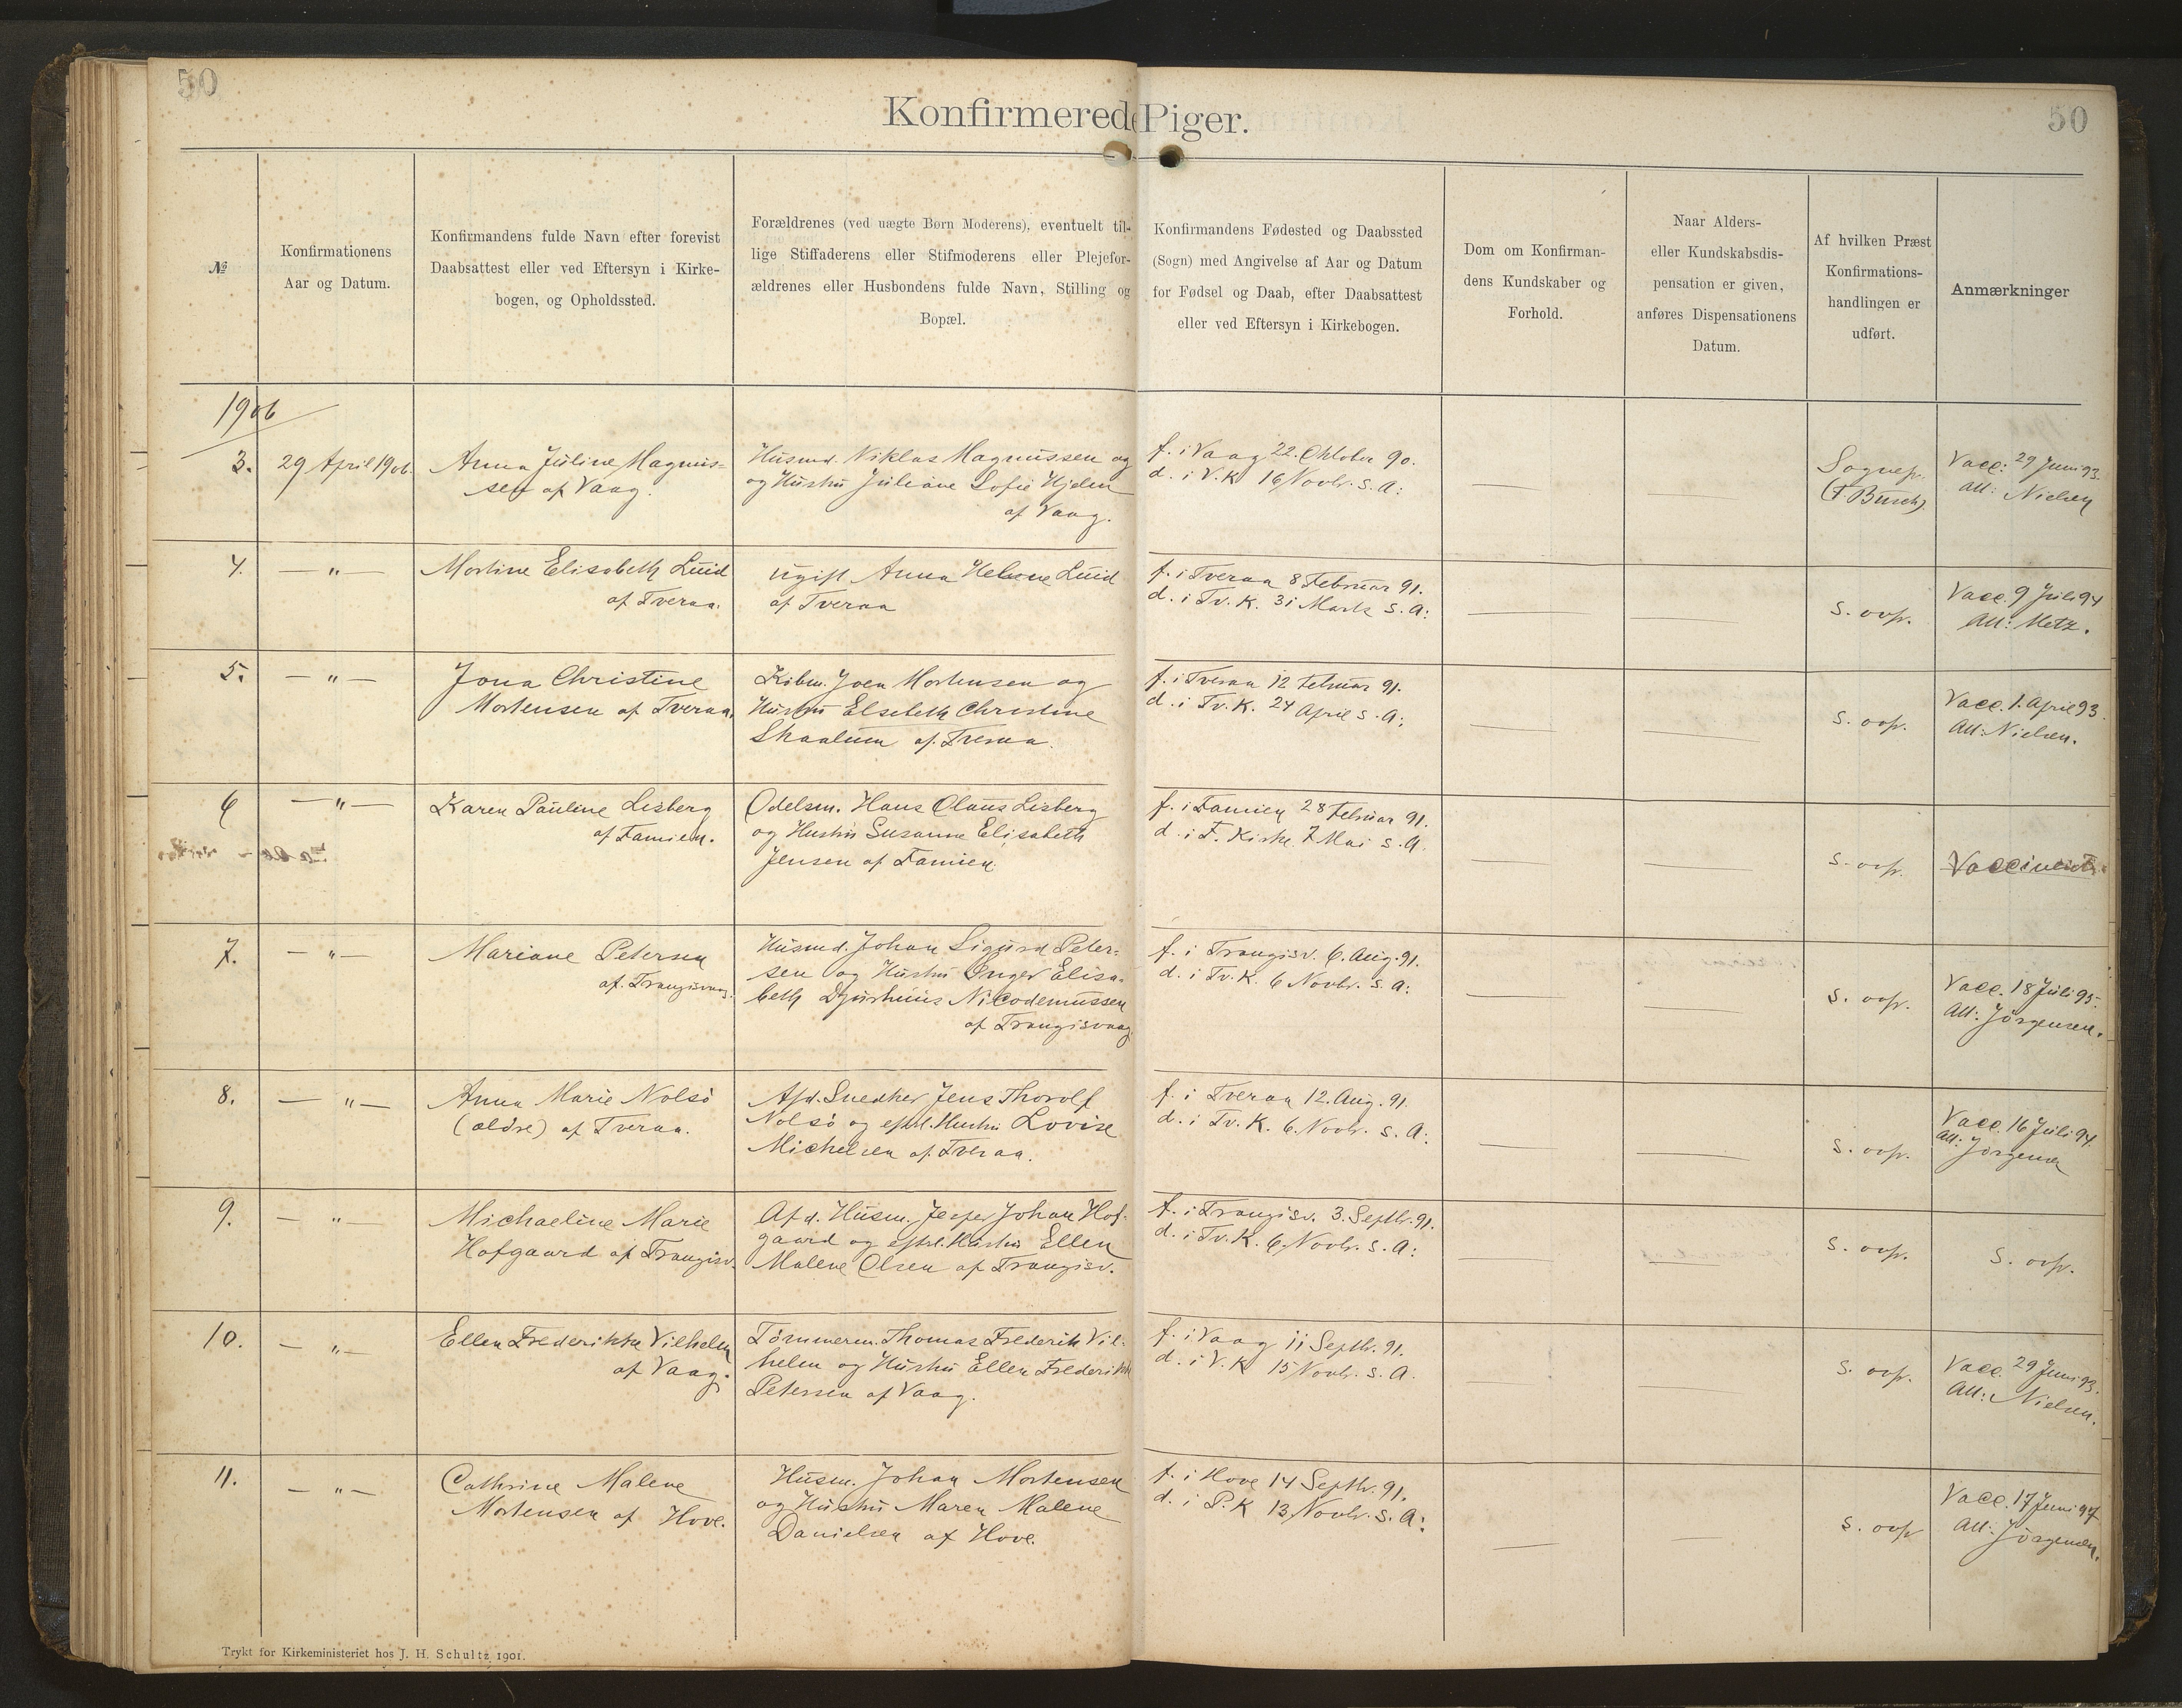 50
50
Konfirmerede Piger.
№
Konfirmationens
Aar og Datum.
Konfirmandens fulde Navn efter forevist
Daabsattest eller ved Eftersyn i Kirke-
bogen, og Opholdssted.
Forældrenes (ved uægte Børn Moderens), eventuelt til-
lige Stiffaderens eller Stifmoderens eller Plejefor-
ældrenes eller Husbondens fulde Navn, Stilling og
Bopæl.
Konfirmandens Fødested og Daabssted
(Sogn) med Angivelse af Aar og Datum
for Fødsel og Daab, efter Daabsattest
eller ved Eftersyn i Kirkebogen.
Dom om Konfirman-
dens Kundskaber og
Forhold.
Naar Alders-
eller Kundskabsdis-
pensation er given,
anføres Dispensationens
Datum.
Af hvilken Præst
Konfirmations-
handlingen er
udført.
Anmærkninger
1906
3.
29 April 1906.
Anna Juline Magnus-
sen af Vaag.
Husmd. Niklas Magnussen og
og Hustru Juliane Sofie Hjelm
af Vaag.
f. i Vaag 22. Oktober 90.
d. i V. K 16 Novbr. s. A:
Sognepr.
(F. Busch)
Vacc: 29 Juni 93.
Att: Nielsen
4.
— " —
Mortine Elisabeth Luid
af Tveraa.
ugift Anna Helene Luid
af Tveraa
f. i Tveraa 8 Februar 91.
d. i Tv. K. 31 Marts s. A:
s. ovfr.
Vacc. 9 Juli 94
Att: Metz.
5.
— " —
Jona Christine
Mortensen af Tveraa.
Købm. Joen Mortensen og
Hustru Elsebeth Christine
Skaalum af Tveraa.
f. i Tveraa 12 Februar 91.
d. i Tv. K. 24 April s. A:
s. ovfr.
Vacc. 1. April 93.
Att: Nielsen.
6
— " —
Karen Pauline Lisberg
af Famien.
Odelsm. Hans Claus Lisberg
og Hustru Susanna Elisabeth
Jensen af Famien
f. i Famien 28 Februar 91.
d. i F. Kirke 7 Mai s. A.
s. ovfr.
7.
— " —
Mariane Petersen
af Trangisvaag.
Husmd. Johan Sigurd Peter-
sen og Hustru Inger Elisa-
beth Djurhuus Nicodemussen
af Trangisvaag
f. i Trangisv. 6. Aug. 91.
d. i Tv. K. 6 Novbr. s. A:
s. ovfr.
Vacc. 18 Juli 95.
Att: Jörgensen.
8.
— " —
Anna Marie Nolsö
(ældre) af Tveraa.
Afd. Snedker Jens Thorolf
Nolsö og eftrl. Hustru Lovise
Michelsen af Tveraa.
f. i Tveraa 12. Aug. 91.
d. i Tv. K. 6. Novbr. s. A:
s. ovfr.
Vacc. 16 Juli 94.
Att: Jörgensen
9.
— " —
Michaeline Marie
Hofgaard af Trangisv.
Afd. Husm. Jesper Johan Hof-
gaard og eftrl. Hustru Ellen
Malene Olsen af Trangisv.
f. i Trangisv. 3. Septbr. 91.
d. i Tv. K. 6. Novbr. s. A:
s. ovfr.
s. ovfr.
10.
— " —
Ellen Frederikke Vilhelm
af Vaag.
Tömmerm. Thomas Frederik Vil-
helm og Hustru Ellen Frederikke
Petersen af Vaag.
f. i Vaag 11 Septbr. 91.
d. i V. K 15 Novbr. s. A.
s. ovfr.
Vacc. 29 Juni 93.
Att: Nielsen.
11.
— " —
Cathrine Malene
Mortensen af Hove.
Husm. Johan Mortensen
og Hustru Maren Malene
Danielsen af Hove.
f. i Hove 14 Septbr. 91.
d. i P. K 13 Novbr. s. A:
s. ovfr
Vacc. 17 Juni 97
Att: Jörgensen.
Trykt for Kirkeministeriet hos J. H. Schultz 1901.